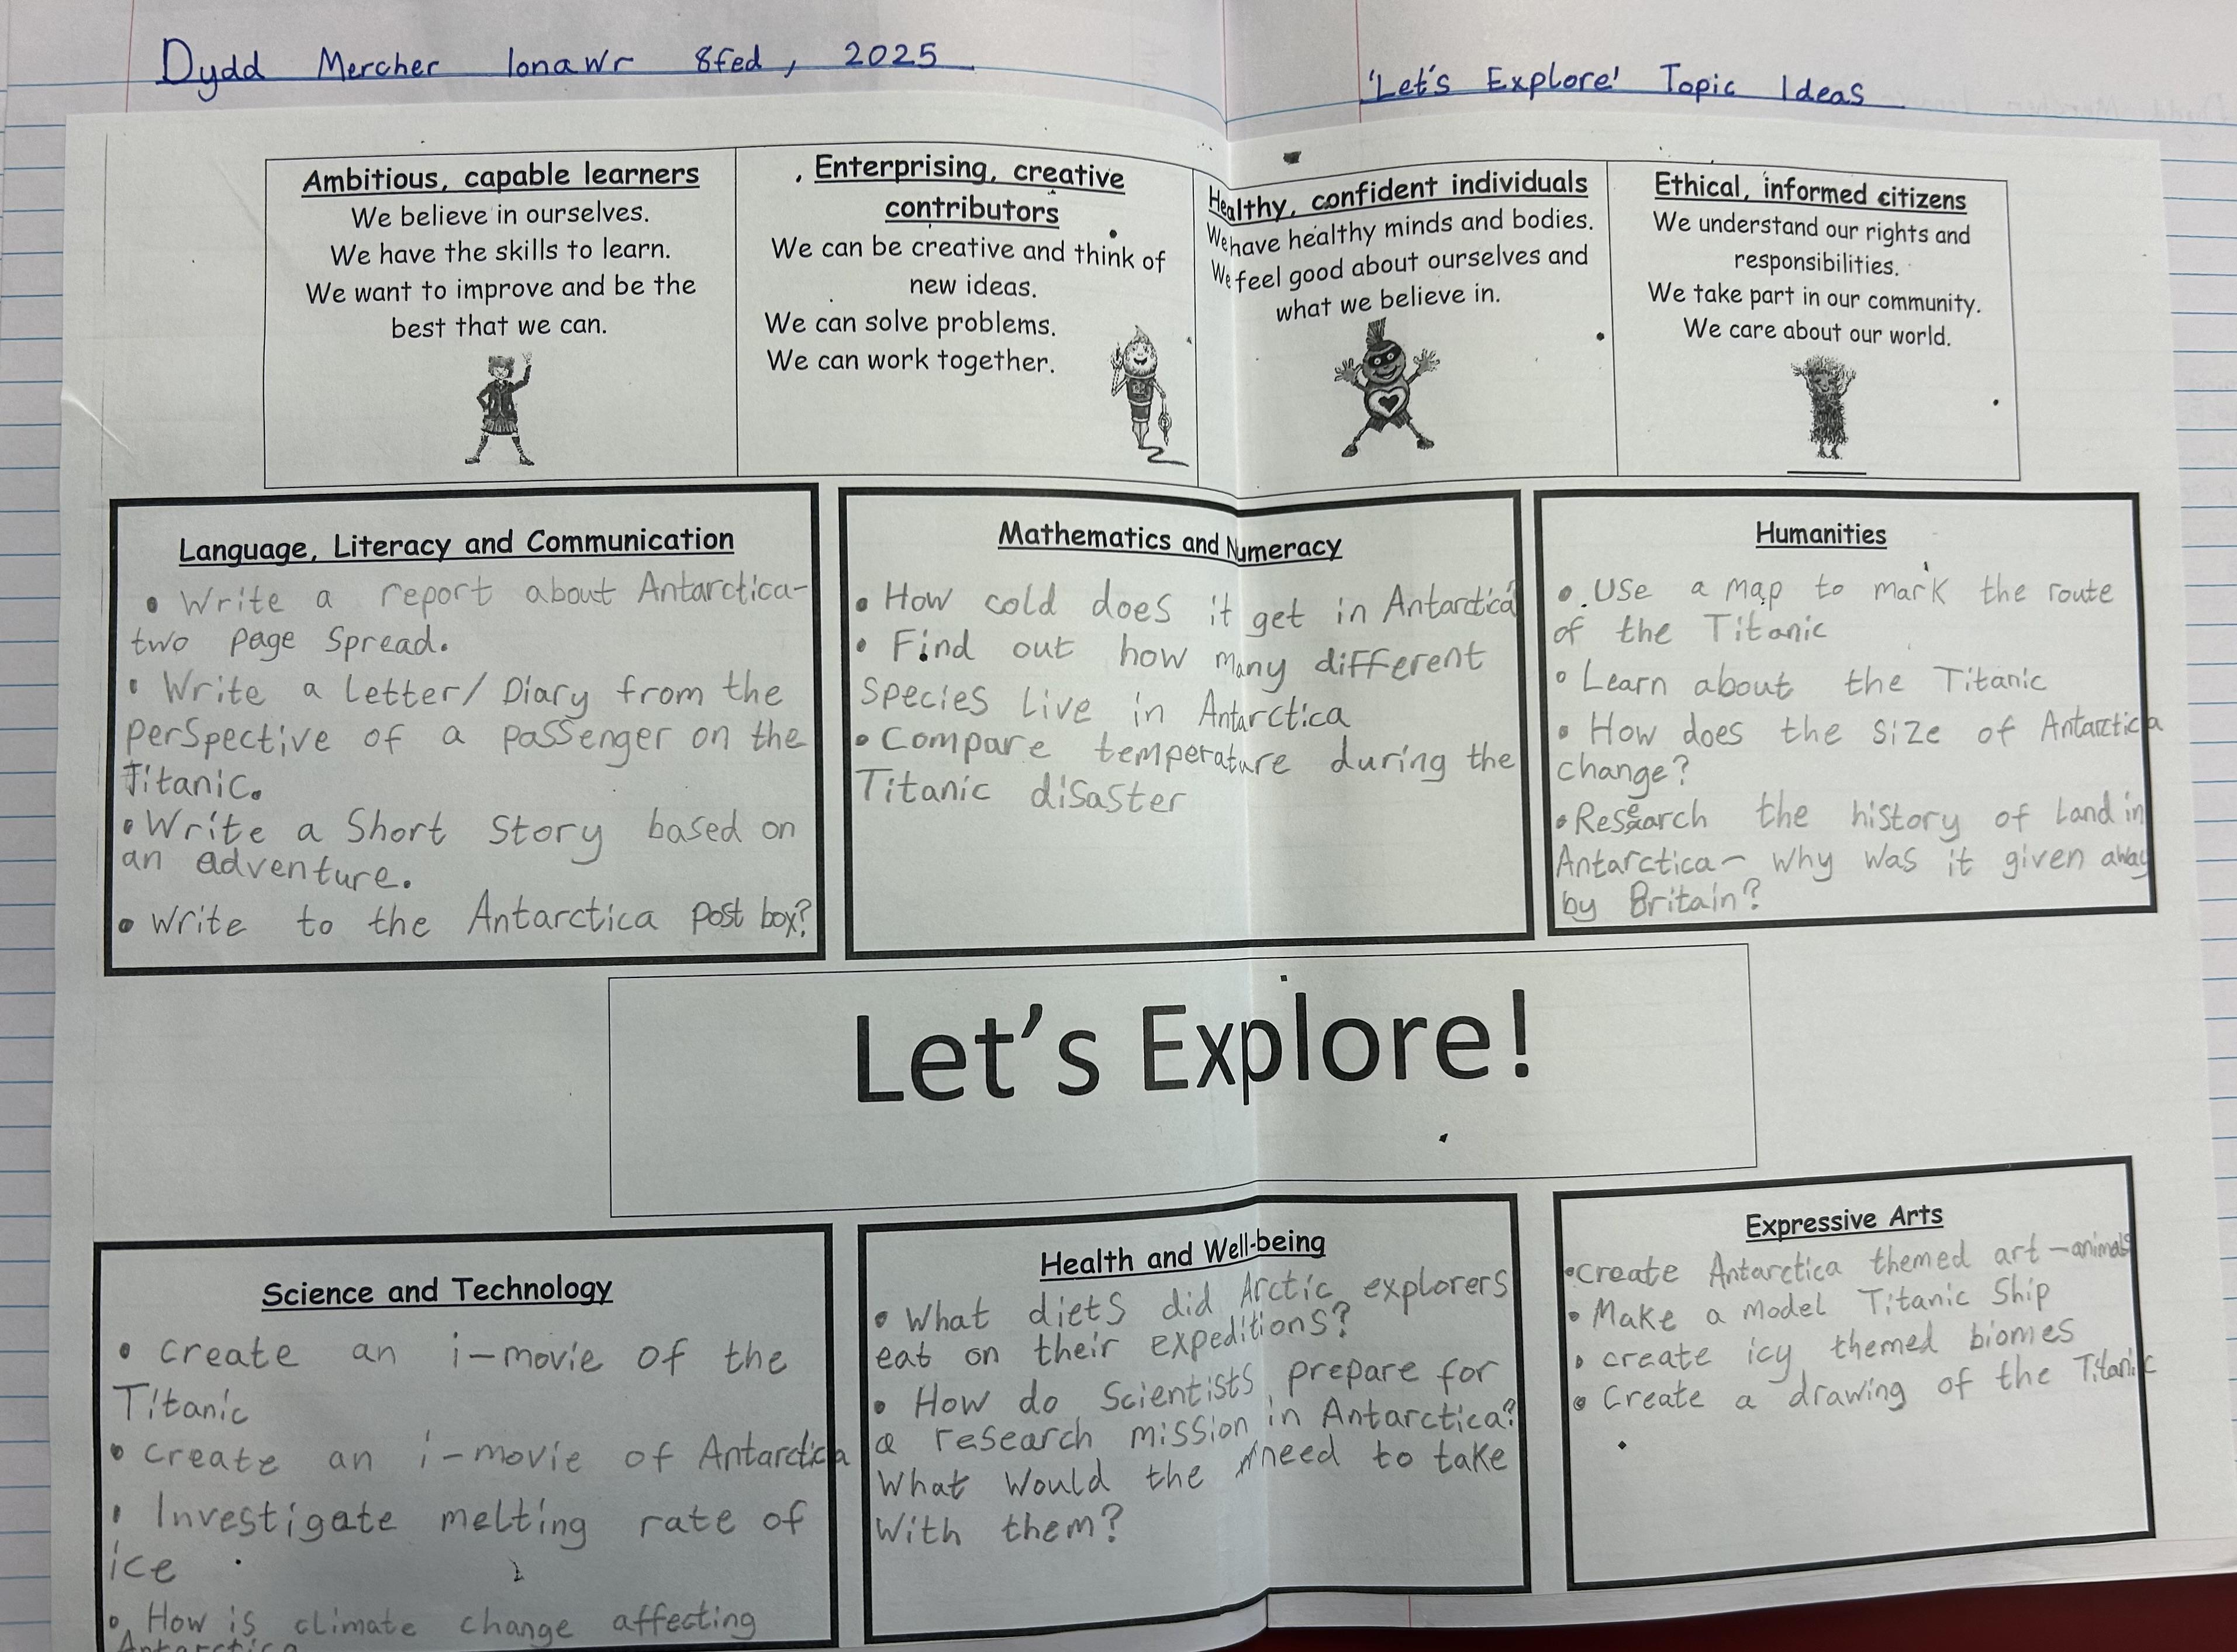 Dydd Mercher Ionawr 8fed, 2025
'Let's Explore' Topic Ideas
Ambitious, capable learners
We believe in ourselves.
We have the skills to learn.
We want to improve and be the
best that we can.
Enterprising, creative
contributors
We can be creative and think of
new ideas.
We can solve problems.
We can work together.
Healthy, confident individuals
We have healthy minds and bodies.
We feel good about ourselves and
what we believe in.
Ethical, informed citizens
We understand our rights and
responsibilities.
We take part in our community.
We care about our world.
Language, Literacy and Communication
• Write a report about Antarctica-
two page spread.
• Write a letter/ Diary from the
perspective of a passenger on the
Titanic.
• Write a Short Story based on
an adventure.
• Write to the Antarctica post box?
Mathematics and Numeracy
• How cold does it get in Antarctica
• Find out how many different
species live in Antarctica
• Compare temperature during the
Titanic disaster
Humanities
• Use a map to mark the route
of the Titanic
• Learn about the Titanic
• How does the size of Antarctica
change?
• Research the history of land in
Antarctica- why was it given away
by Britain?
Let's Explore!
Science and Technology
• create an i-movie of the
Titanic
• create an i-movie of Antarctica
• Investigate melting rate of
ice
• How is climate change affecting
Antarctica
Health and Well-being
• What diets did Arctic explorers
eat on their expeditions?
• How do Scientists prepare for
a research mission in Antarctica?
What would the need to take
with them?
Expressive Arts
• create Antarctica themed art - animals
• Make a model Titanic Ship
• create icy themed biomes
• Create a drawing of the Titanic